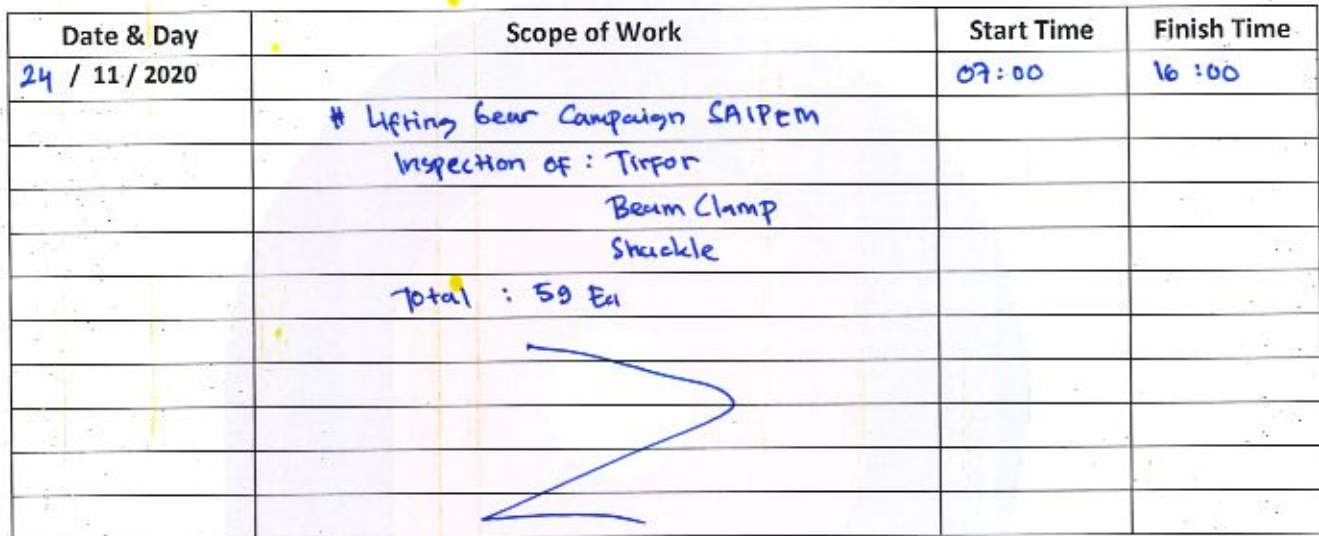 Date & Day Scope of Work Start Time Finish Time
24 / 11 / 2020 07:00 16:00
# Lifting Gear Campaign SAIPEM
Inspection of : Tirfor
Beam Clamp
Shackle
Total : 59 Ea